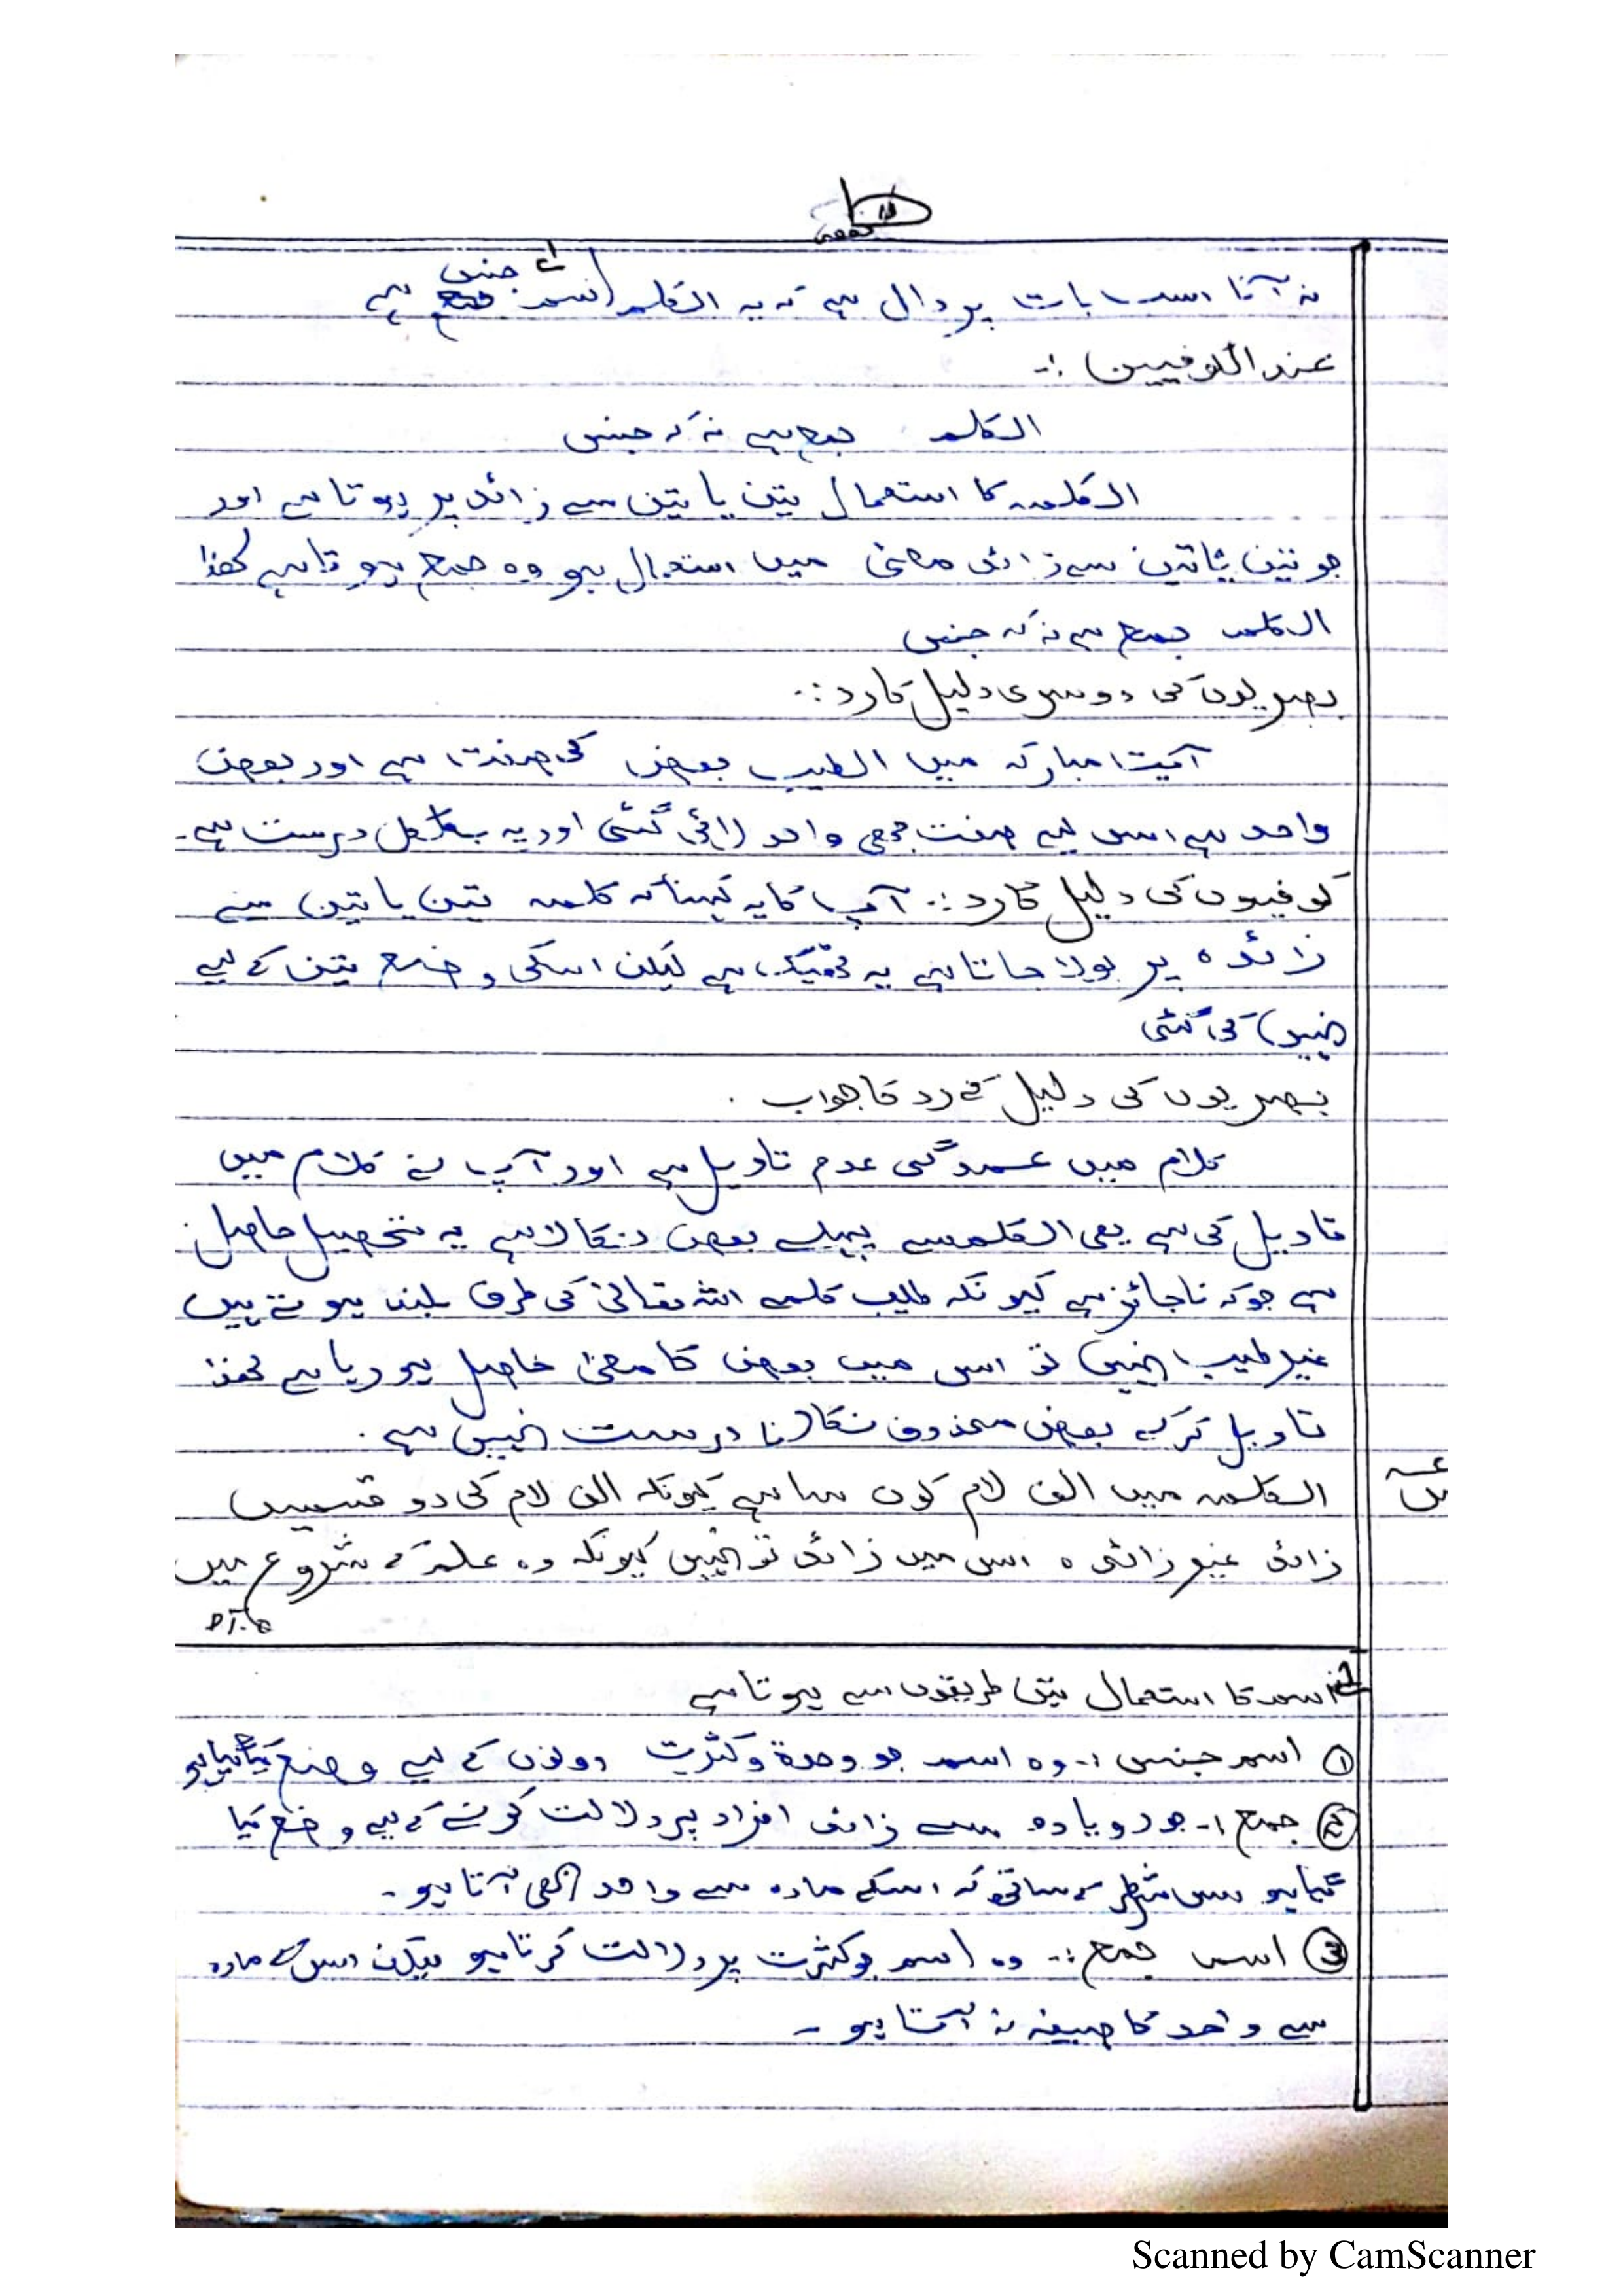 نہ آنا اس بات پر دال ہے کہ یہ الکلم اسم جنس ہے
عند الکوفیین :-
الکلم جمع ہے نہ کہ جنس
الکلمہ کا استعمال تین یا تین سے زائد پر ہوتا ہے اور
جو تین یا تین سے زائد معنی میں استعمال ہو وہ جمع ہوتا ہے لھذا
الکلم جمع ہے نہ کہ جنس
بصریوں کی دوسری دلیل کا رد :-
آیت مبارکہ میں الطیب بعض کی صفت ہے اور بعض
واحد ہے اس لیے صفت بھی واحد لائی گئی اور یہ بالکل درست ہے۔
کوفیوں کی دلیل کا رد :- آپ کا یہ کہنا کہ کلمہ تین یا تین سے
زائدہ پر بولا جاتا ہے یہ ٹھیک ہے لیکن اسکی وضع تین کے لیے
نہیں کی گئی
بصریوں کی دلیل کے رد کا جواب ۔
کلام میں عمدگی عدم تاویل ہے اور آپ نے کلام میں
تاویل کی ہے یعی الکلم سے پہلے بعض نکالا ہے یہ تحصیل حاصل
ہے جو کہ ناجائز ہے کیونکہ طیب کلمے اللہ تعالیٰ کی طرف بلند ہوتے ہیں
غیر طیب نہیں تو اس میں بعض کا معنیٰ حاصل ہو رہا ہے لھذا
تاویل کرکے بعض محذوف نکالنا درست نہیں ہے ۔
الکلمہ میں الف لام کون سا ہے کیونکہ الف لام کی دو قسمیں
زائد غیر زائدہ اس میں زائد تو نہیں کیونکہ وہ علم کے شروع میں
P.T.O
اسم کا استعمال تین طریقوں سے ہوتا ہے
① اسم جنس :- وہ اسم جو وحدۃ و کثرت دونوں کے لیے وضع کیا گیا ہو
② جمع :- جو دو یا دو سے زائد افراد پر دلالت کرنے کے لیے وضع کیا
گیا ہو اس شرط کے ساتھ کہ اسکے مادہ سے واحد بھی آتا ہو۔
③ اسم جمع :- وہ اسم جو کثرت پر دلالت کرتا ہو لیکن اس کے مادہ
سے واحد کا صیغہ نہ آتا ہو ۔
Scanned by CamScanner